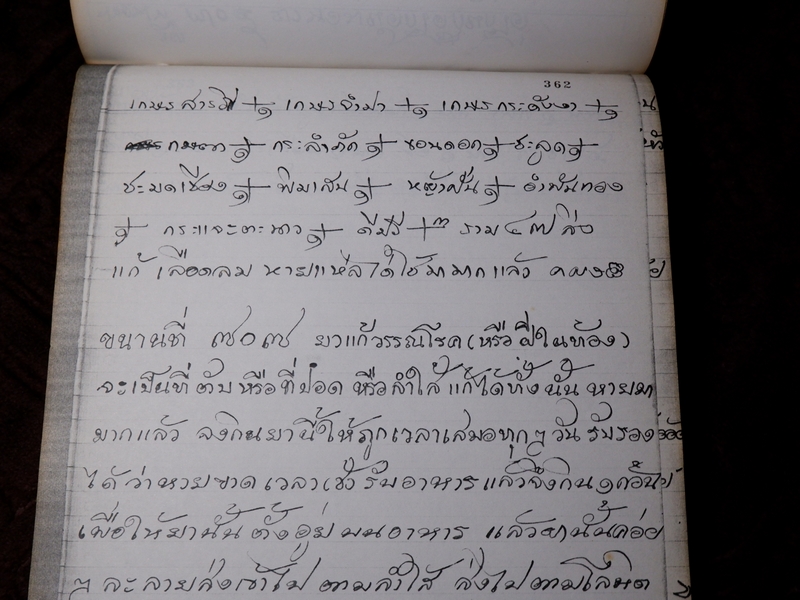 362
เกษรสารภี +๑ เกษรจำปา +๑ เกษรกระดังงา +๑
กฤษณา +๑ กระลำภัก +๑ ขอนดอก +๑ ชะลูด +๑
ชะมดเชียง +๑ พิมเสน +๑ หญ้าฝรั่น +๑ อำพันทอง
+๑ กระแจะตะนาว +๑ ดีหมี +๓ รวม ๔๗ สิ่ง
แก้ เลือดลม หายแห่ ได้ใช้มามากแล้ว
ขนานที่ ๗๐๗ ยาแก้วรรณโรค (หรือฝีในท้อง)
จะเป็นที่ตับหรือที่ปอด หรือลำไส้ แก้ได้ทั้งนั้น หายมา
มากแล้ว จงกินยานี้ให้ถูกเวลาเสมอทุกๆวัน รับรอง
ได้ว่าหายขาด เวลาเช้ารับอาหารแล้วจึงกิน
เพื่อให้ยานั้น ตั้งอยู่บนอาหาร แล้วยานั้นค่อย
ๆ ละลายส่งเข้าไปตามลำไส้ ส่งไปตามโลหิต